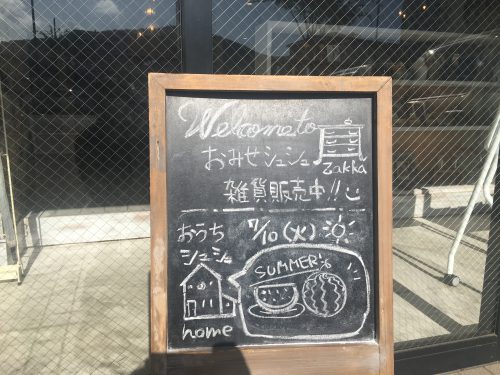 Welcome to
おみせシュシュ
zakka
雑貨販売中!!
おうち
シュシュ
7/10(火)
SUMMER
home